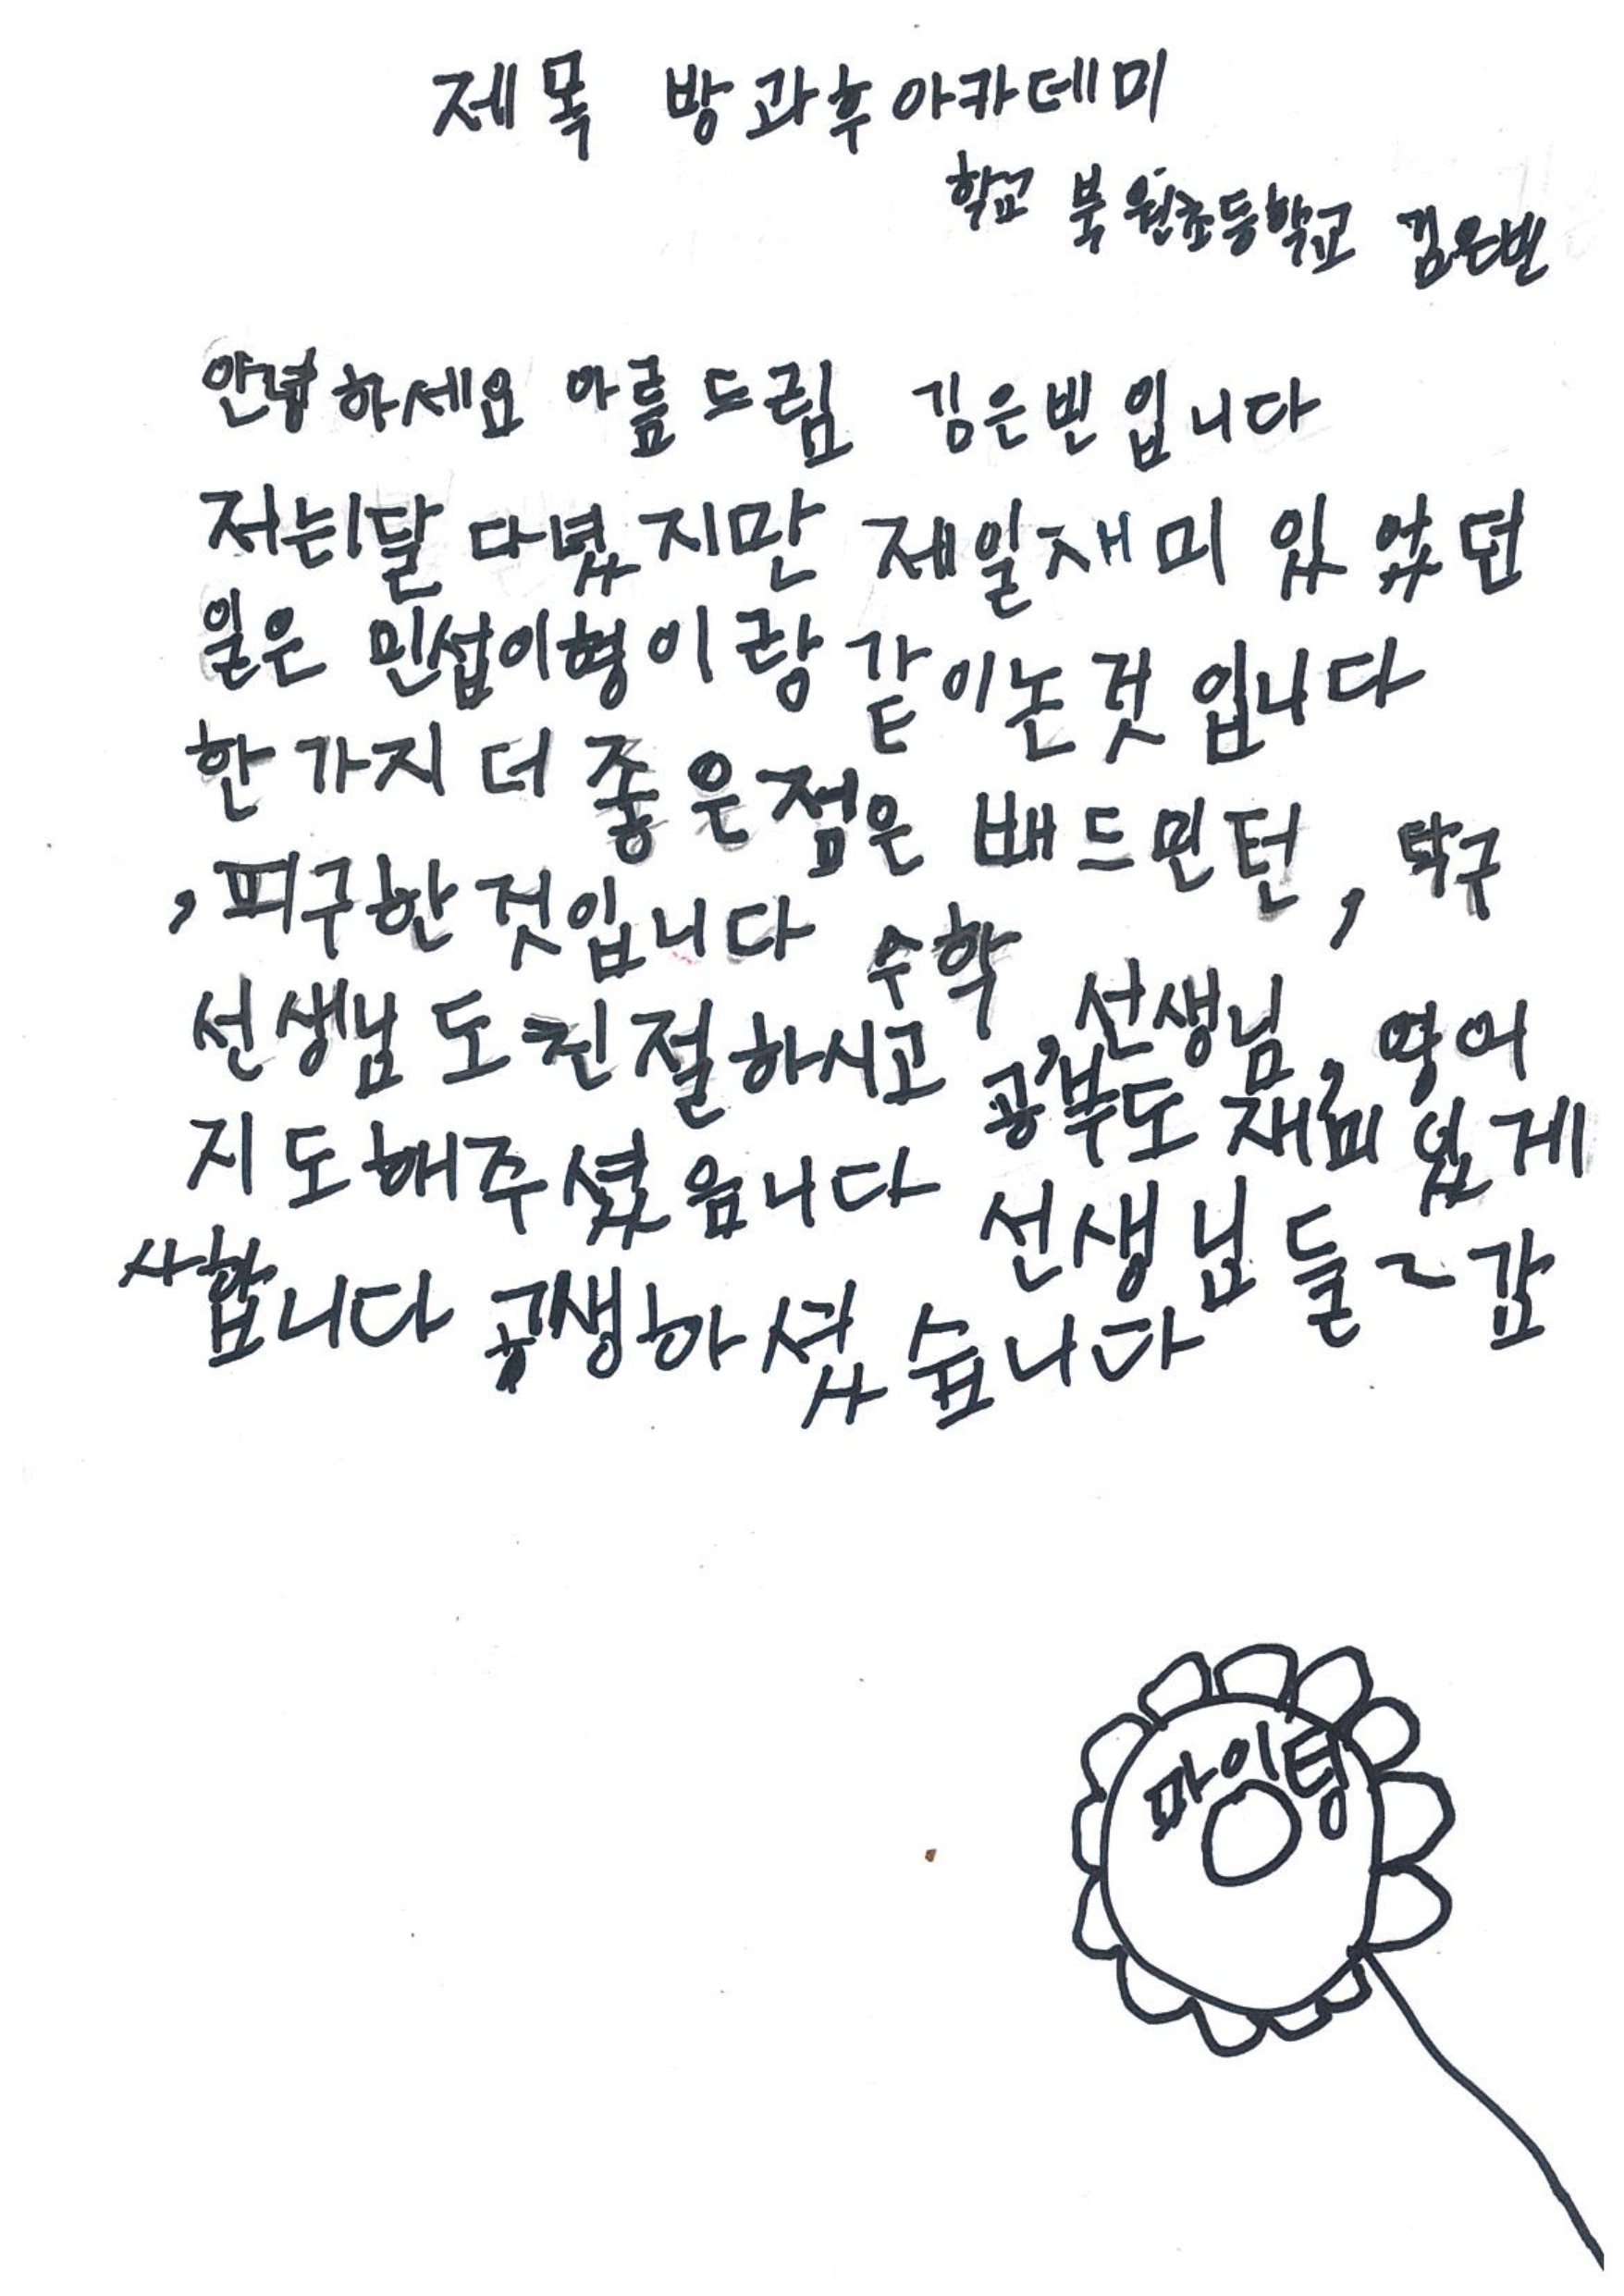 제목 방과후아카데미
학교 북원초등학교 김은빈
안녕하세요 아름드림 김은빈입니다
저는1달 다녔지만 제일재미 있었던
일은 민섭이형이랑 같이논것 입니다
한가지더 좋은점은 배드민턴, 탁구
,피구한것입니다 수학, 선생님, 영어
선생님도친절하시고 공부도 재미있게
지도해주셨음니다 선생님들~감
사합니다 공생하셨습니다
파이팅